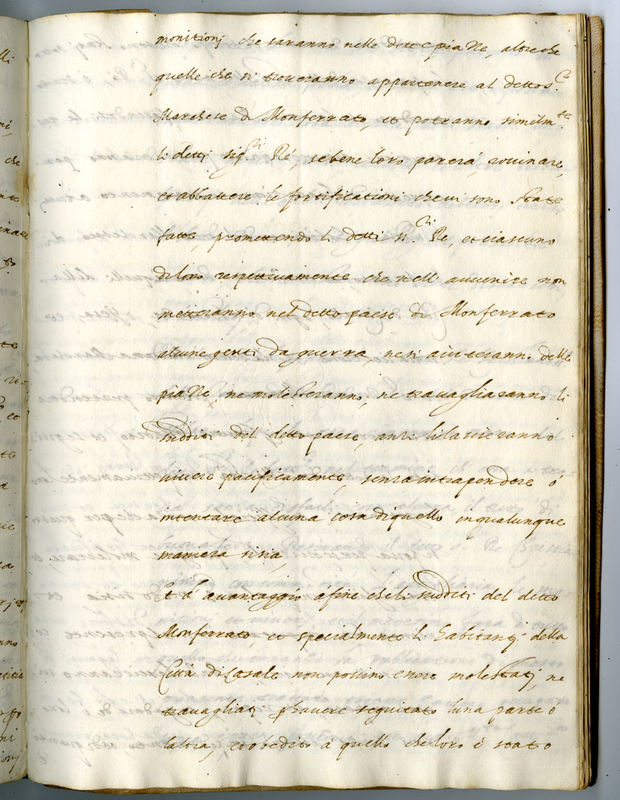 monitioni che saranno nelle dette piazze, altre che
quelle che si troveranno appartenere al detto S.
Marchese di Monferrato, et potranno similm.te
li detti sig.ri Ré, se bene loro parerà, rouinare,
et abbattere le fortificationi che vi sono state
fatte promettendo li detti s.ri Re, et ciascuno
di loro respettiuamente che nell' auuenire non
metteranno nel detto paese di Monferrato
alcune genti da guerra, ne si aiuteranno delle
piazze, ne molesteranno, ne trauaglieranno li
sudditi del detto paese, anzi li lascieranno
uiuere pacificamente, senza intraprendere ó
intentare alcuna cosa di quello in qualunque
maniera si sia,
Et d' auantaggio á fine che li sudditi del detto
Monferrato, et specialmente li habitanti della
Città di Casale non possino essere molestati, ne
trauagliati p hauere seguitato l'una parte ó
l'altra, et obedito a quello che loro é stato